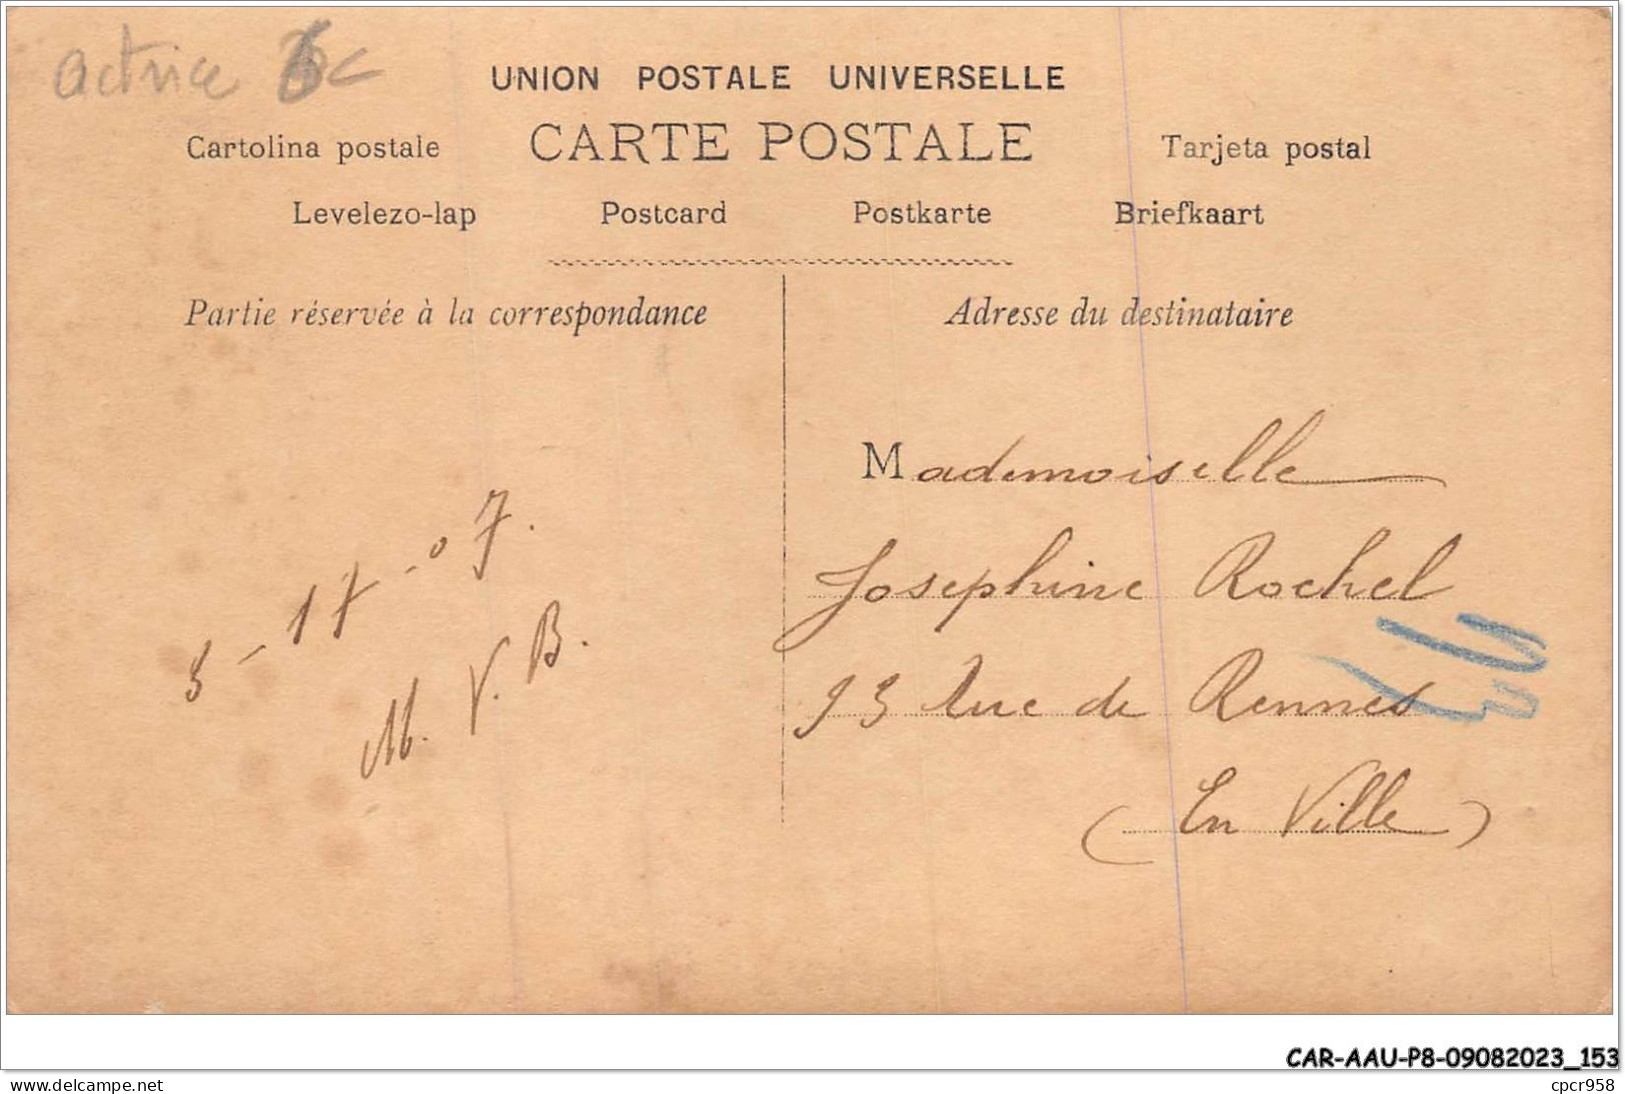 actrice
UNION POSTALE UNIVERSELLE
CARTE POSTALE
Cartolina postale
Tarjeta postal
Levelezo-lap Postcard Postkarte Briefkaart
Partie réservée à la correspondance
Adresse du destinataire
Mademoiselle
Josephine Rochel
93 Rue de Rennes
(En Ville)
M. V. B.
CAR-AAU-P8-09082023_153
www.delcampe.net
cpcr958